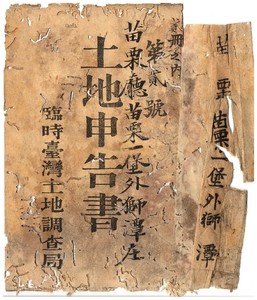 苗栗苗栗一堡外獅潭
冊之內
第貳號
苗栗廳苗栗一堡外獅潭庄
土地申告書
臨時臺灣土地調查局